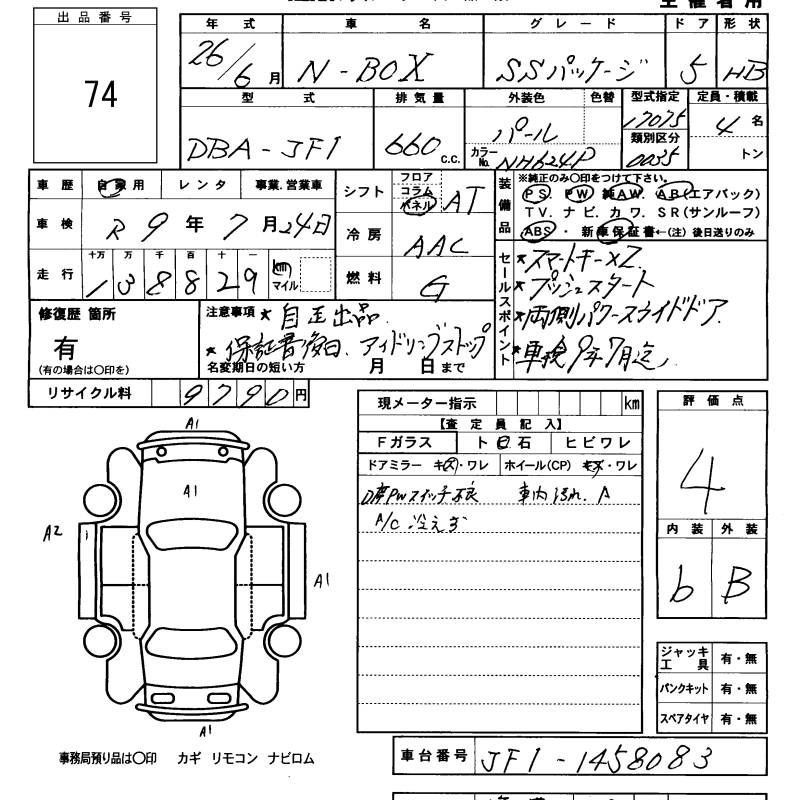 出品番号
74
年式 車名 グレード ドア 形状
26/6月 N-BOX SSパッケージ 5 HB
型式 排気量 外装色 色替 型式指定 定員・積載
DBA-JF1 660 C.C. パール 17075 4名
カラーNo. NH624P 類別区分 0035 トン
車歴 自家用 レンタ 事業.営業車
シフト フロア コラム パネル AT
装備品 ※純正のみ○印をつけて下さい。
PS. PW 純AW. AB(エアバック)
TV. ナビ. カワ. SR(サンルーフ)
ABS・新車保証書←(注)後日送りのみ
車検 R9年7月24日
冷房 AAC
走行 十万 万 千 百 十 一
138829 km マイル
燃料 G
セールスポイント
★スマートキー×2.
★プッシュスタート
★両側パワースライドドア.
★車検9年7月迄.
修復歴 箇所
有
(有の場合は○印を)
注意事項 ★自主出品.
★保証書後日. アイドリングストップ
名変期日の短い方 月 日まで
リサイクル料 9790円
現メーター指示 km
【査定員記入】
Fガラス ト石 ヒビワレ
ドアミラー キズ・ワレ ホイール(CP) キズ・ワレ
D席PWスイッチ不良 車内汚れ. A
A/C 冷えず
評価点
4
内装 外装
b B
A1
A1
A2
A1
A1
ジャッキ工具 有・無
パンクキット 有・無
スペアタイヤ 有・無
事務局預り品は○印 カギ リモコン ナビロム
車台番号 JF1-1458083